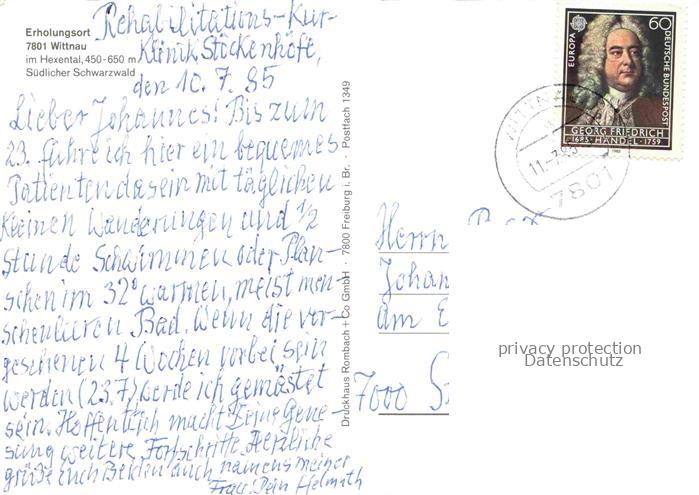 Erholungsort
7801 Wittnau
im Hexental, 450-650 m
Südlicher Schwarzwald
Rehabilitations-Kur-
Klinik Stöckenhöfe,
den 10. 7. 85
Lieber Johannes! Bis zum
23. führe ich hier ein bequemes
Patientendasein mit täglichen
kleinen Wanderungen und 1/2
Stunde Schwimmen oder Plan-
schen im 32° warmen, meist men-
schenleeren Bad. Wenn die vor-
gesehenen 4 Wochen vorbei sein
werden (23.7) werde ich gemästet
sein. Hoffentlich macht Deine Gene-
sung weitere Fortschritte. Herzliche
grüße Euch Beiden auch namens meiner
Frau, Dein Helmuth
Druckhaus Rombach + Co GmbH · 7800 Freiburg i. Br. · Postfach 1349
EUROPA
60
DEUTSCHE BUNDESPOST
GEORG FRIEDRICH
1685 HÄNDEL 1759
WITTNAU
11.-7.85
7801
Herrn
Johan
Am E
7000 S
privacy protection
Datenschutz